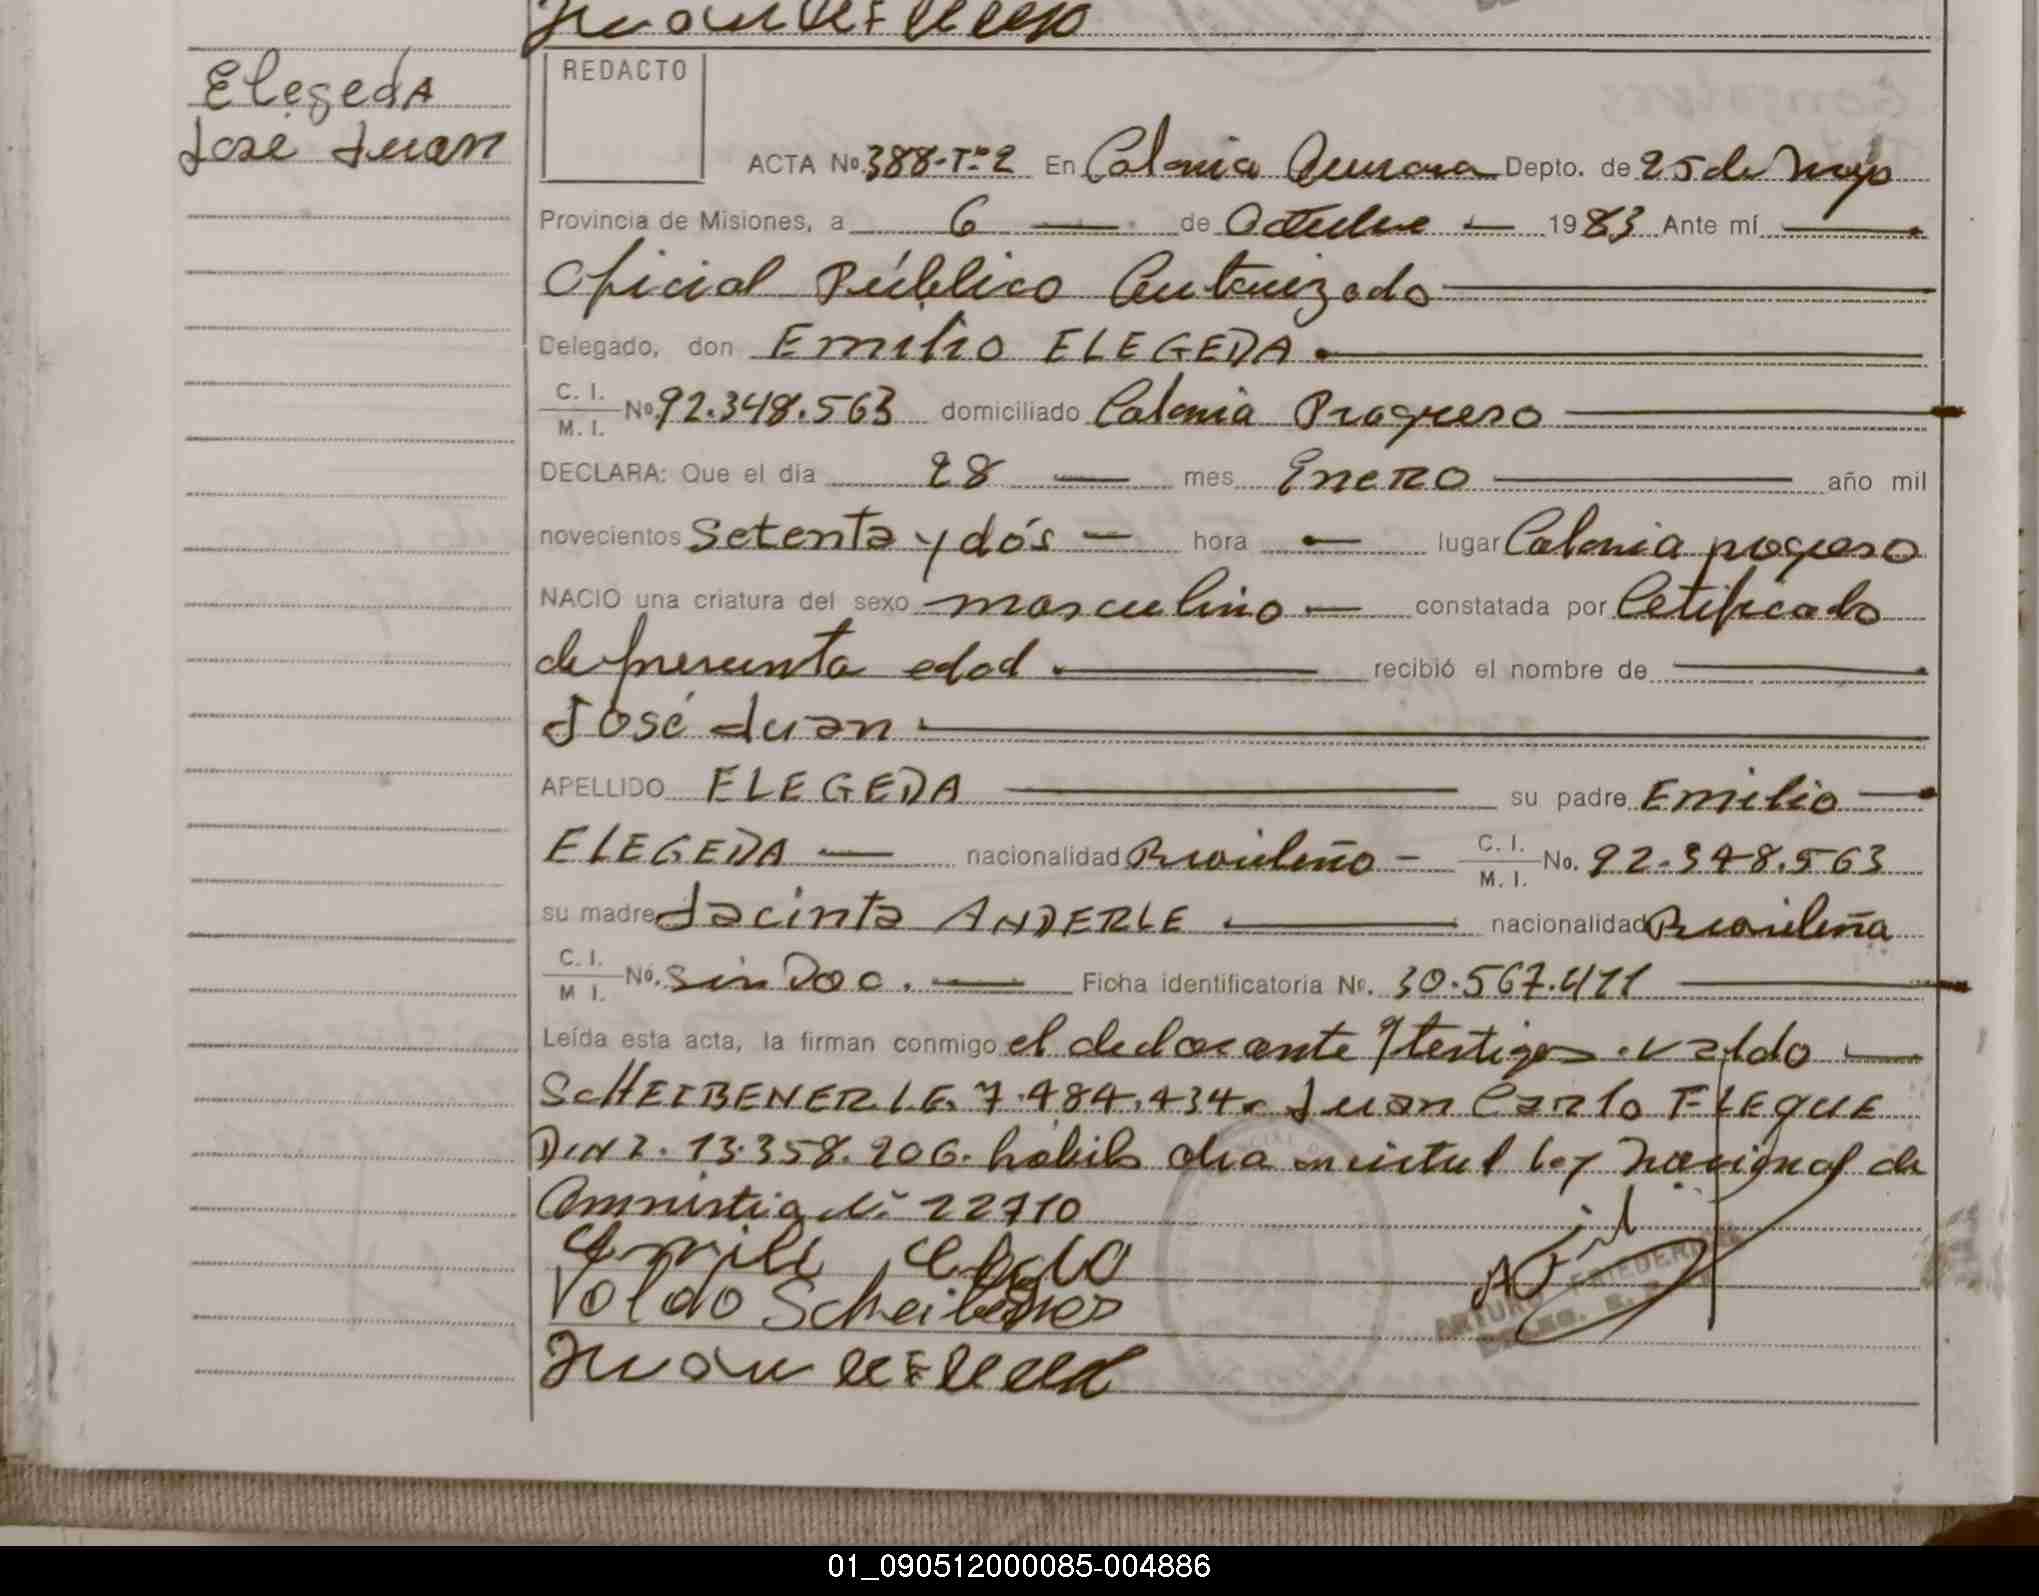 REDACTO
Elegeda
José Juan
ACTA Nº 388-Tº2 En Colonia Aurora Depto. de 25 de Mayo
Provincia de Misiones, a 6 de Octubre 1983 Ante mí
Oficial Público Autorizado
Delegado, don Emilio ELEGEDA
C. I.
M. I. Nº 92.348.563 domiciliado Colonia Progreso
DECLARA: Que el día 28 mes Enero año mil
novecientos Setenta y dós hora lugar Colonia progreso
NACIO una criatura del sexo masculino constatada por Cetificado
de presunta edad recibió el nombre de
José Juan
APELLIDO ELEGEDA su padre Emilio
ELEGEDA nacionalidad Brasileño C. I.
M. I. No. 92.348.563
su madre Jacinta ANDERLE nacionalidad Brasileña
C. I.
M I. No. Sin Doc. Ficha identificatoria Nº. 30.567.411
Leída esta acta, la firman conmigo el declarante y testigos. Valdo
SCHEIBENER L.E. 7.484.434. Juan Carlo
13.358.206. hábil en virtud ley nacional de
Amnistia Nº 22710
Valdo Scheibener
Juan
ARTURO FRIEDER
01_090512000085-004886